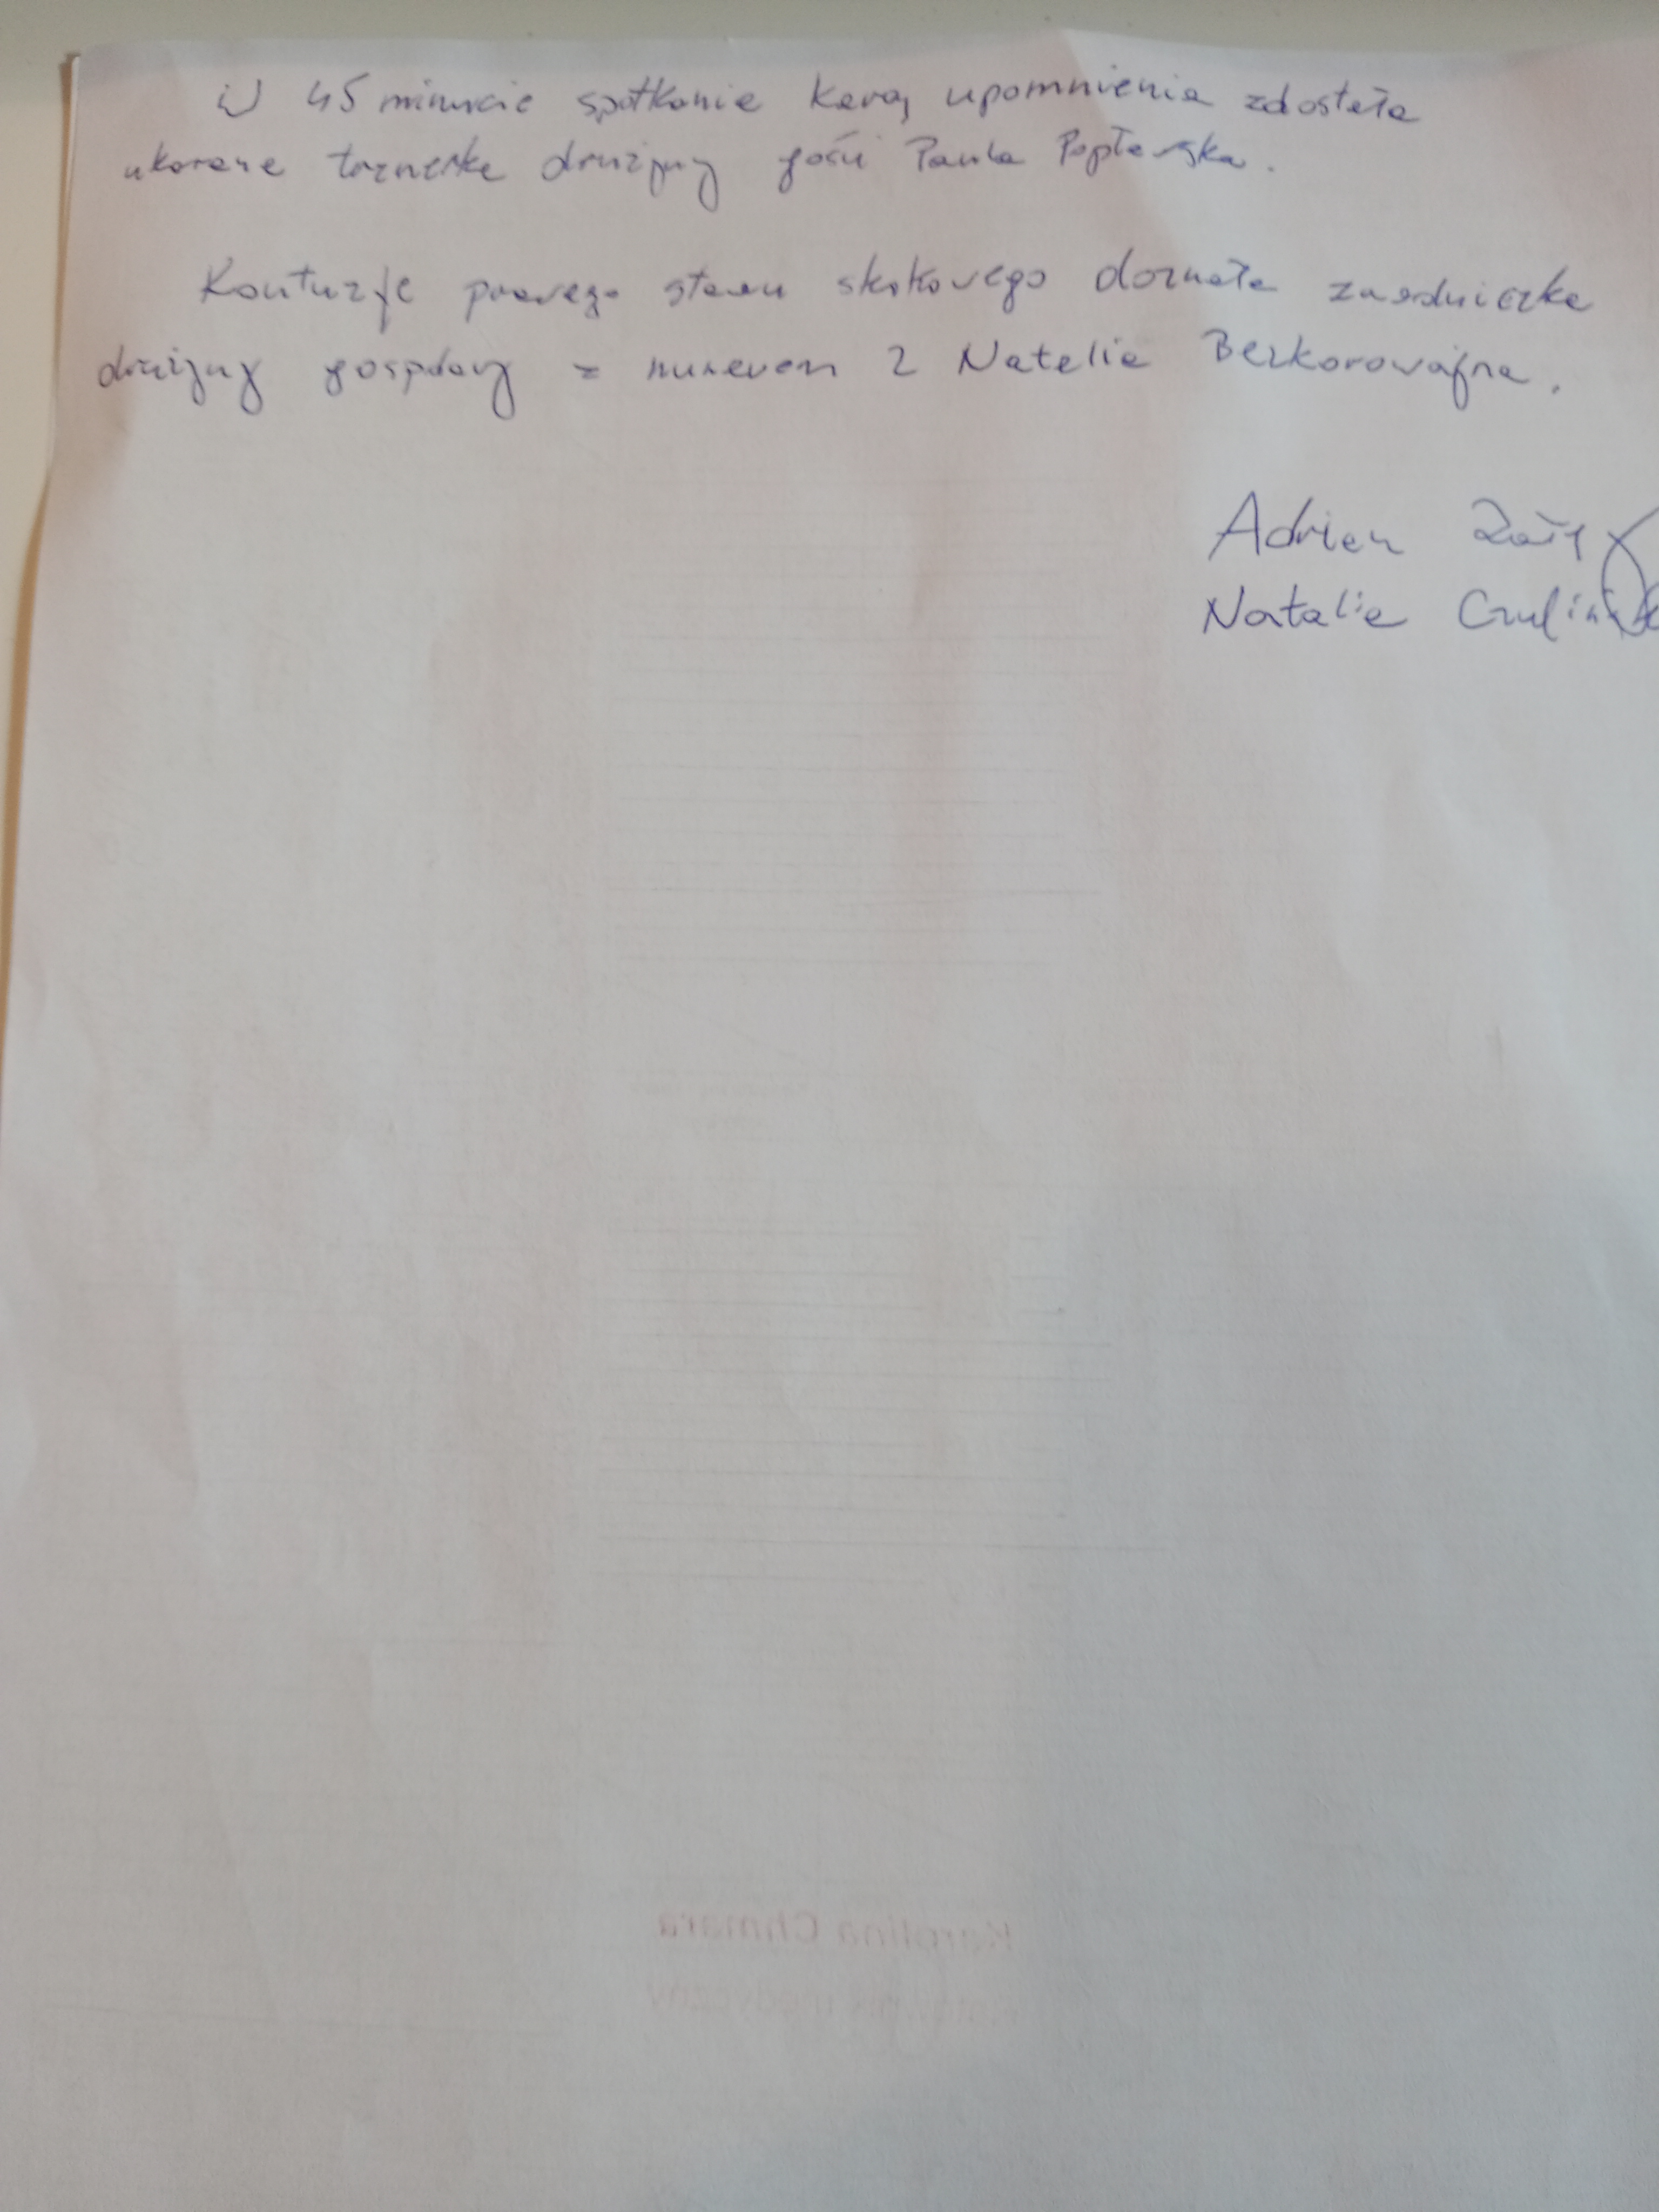 W 45 minucie spotkania karą upomnienia zdostała
ukarana trenerka drużyny gości Paula Popławska.
Kontuzję prawego stawu skokowego doznała zawodniczka
drużyny gospdarzy z numerem 2 Natalia Bezkorowajna.
Adrian
Natalia
Karolina Chmara
medyczny